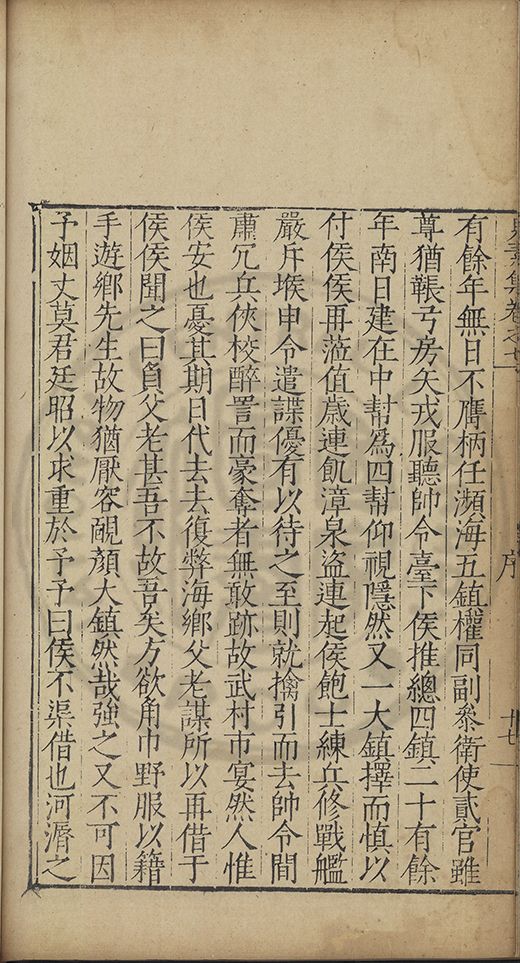 集卷之七
序
廿七
有餘年無日不膺柄任瀕海五鎮權同副叅衛使貳官雖
尊猶韔弓房矢戎服聽帥令臺下侯推總四鎮二十有餘
年南日建在中幇為四幇仰視隱然又一大鎮擇而慎以
付侯侯再蒞值歲連飢漳泉盜連起侯飽士練兵修戰艦
嚴斥堠申令遣諜優有以待之至則就擒引而去帥令間
肅冗兵俠校醉詈而豪奪者無敢跡故武村市宴然人惟
侯安也憂其期日代去去復弊海鄉父老謀所以再借于
侯侯聞之曰負父老甚吾不故吾矣方欲角巾野服以籍
手遊鄉先生故物猶厭容靦顏大鎮然哉強之又不可因
予姻丈莫君廷昭以求重於予予曰侯不渠借也河湑之